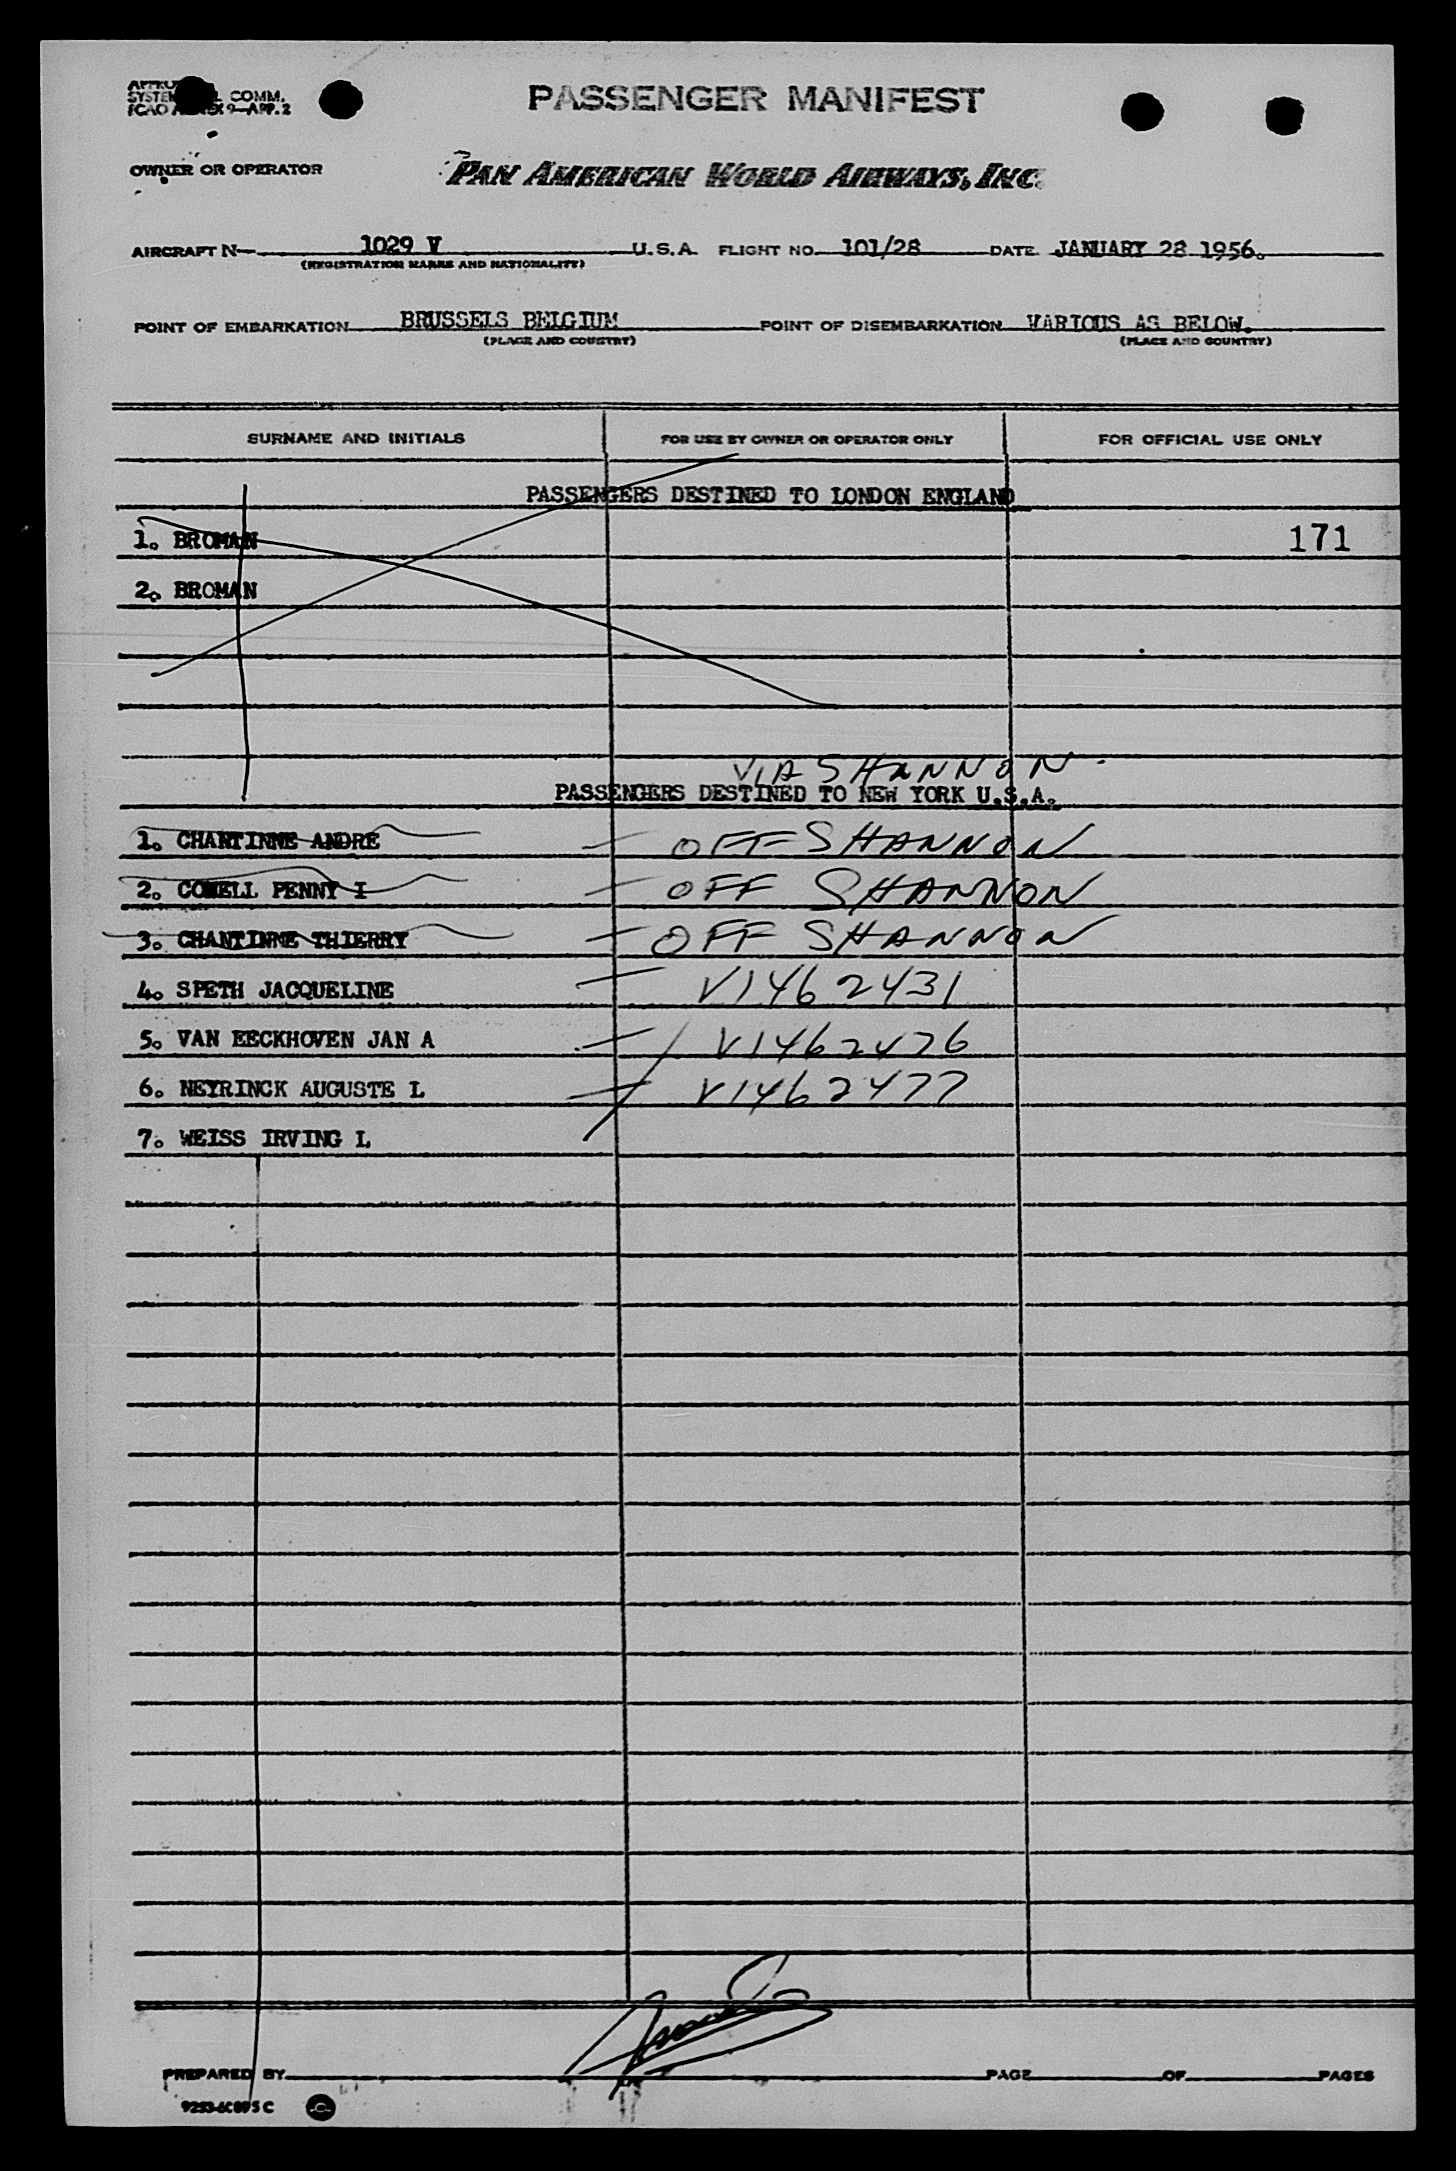 SYSTEM COMM.
ICAO ANNEX 9—APP. 2
PASSENGER MANIFEST
OWNER OR OPERATOR
PAN AMERICAN WORLD AIRWAYS, INC.
AIRCRAFT N— 1029 V U.S.A. FLIGHT NO. 101/28 DATE JANUARY 28 1956.
(REGISTRATION MARKS AND NATIONALITY)
POINT OF EMBARKATION BRUSSELS BELGIUM POINT OF DISEMBARKATION VARIOUS AS BELOW.
(PLACE AND COUNTRY) (PLACE AND COUNTRY)
SURNAME AND INITIALS FOR USE BY OWNER OR OPERATOR ONLY FOR OFFICIAL USE ONLY
PASSENGERS DESTINED TO LONDON ENGLAND
1. BROMAN 171
2. BROMAN
VIA SHANNON
PASSENGERS DESTINED TO NEW YORK U.S.A.
1. CHANTINNE ANDRE OFF SHANNON
2. COWELL PENNY I OFF SHANNON
3. CHANTINNE THIERRY OFF SHANNON
4. SPETH JACQUELINE V1462431
5. VAN EECKHOVEN JAN A V1462476
6. NEYRINCK AUGUSTE L V1462477
7. WEISS IRVING L
PREPARED BY PAGE OF PAGES